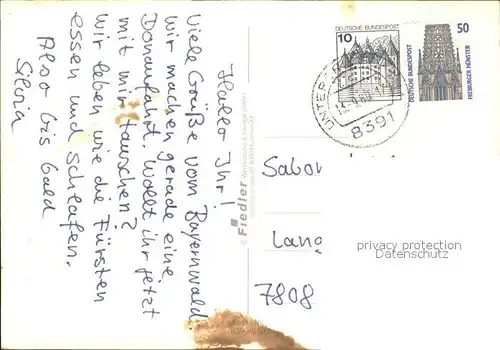 Hallo Ihr!
Viele Grüße vom Bayernwald.
Wir machen gerade eine
Donaufahrt. Wollt ihr jetzt
mit mir tauschen?
Wir leben wie die Fürsten
essen und schlafen.
Also bis bald
Silvia
Fiedler
DEUTSCHE BUNDESPOST
10
50
DEUTSCHE BUNDESPOST
FREIBURGER MÜNSTER
8391
Lang
7808
privacy protection
Datenschutz